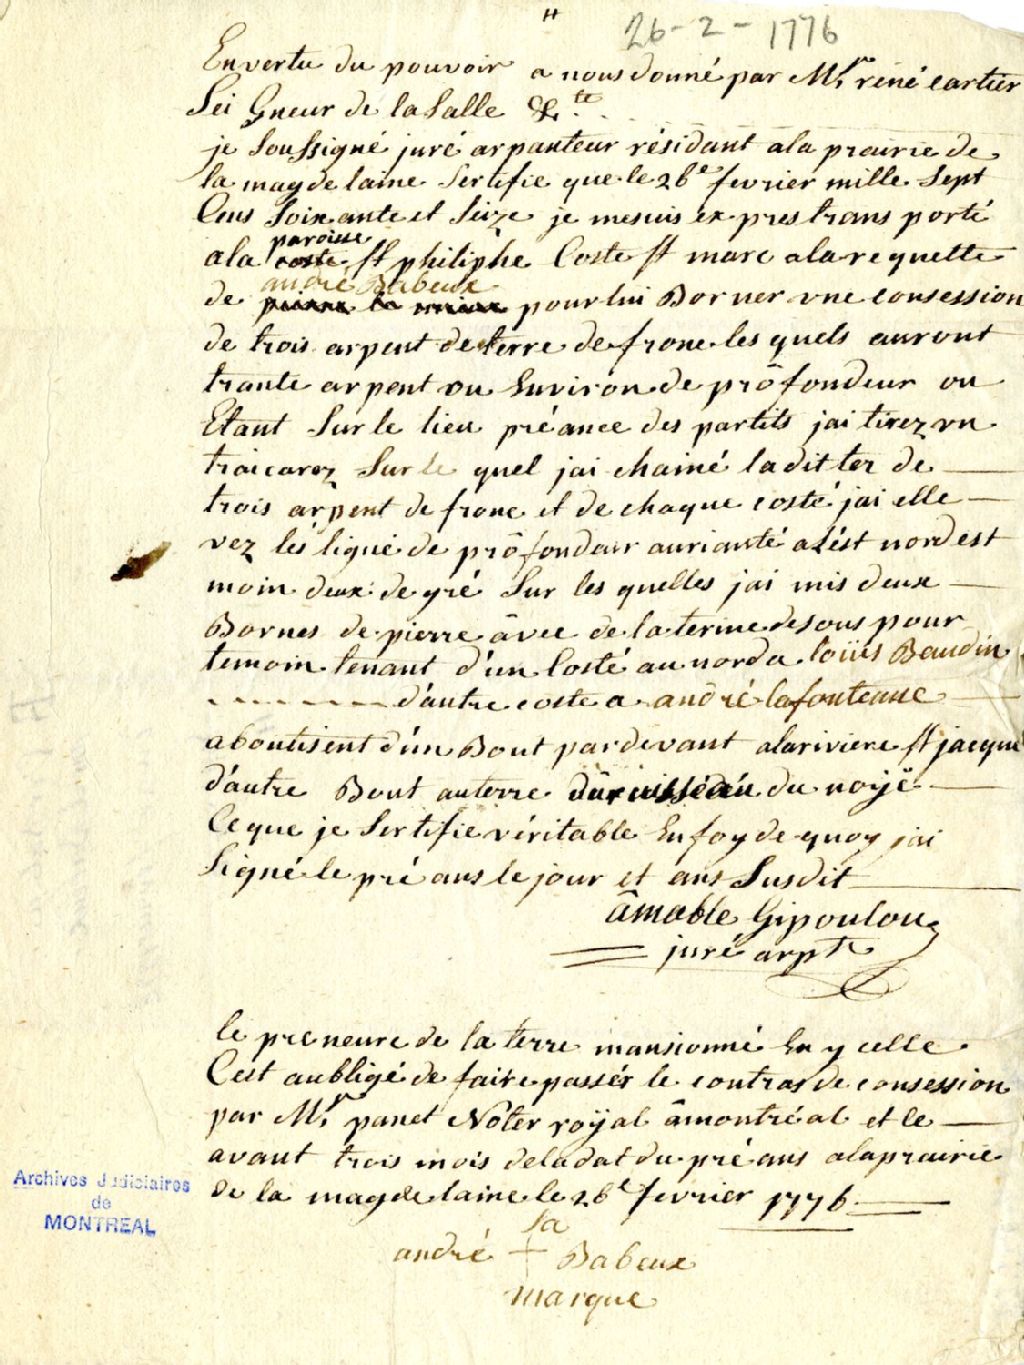 26-2-1776
En vertu du pouvoir a nous donné par Mr rené cartier
Sei Gneur de la Salle &c.te
je Soussigné juré arpanteur résidant a la prairie de
la magdelaine Sertifie que le 26e fevrier mille Sept
Cens Soixante et Sèize je me suis ex pres trans porté
a la coste paroisse st philiphe Coste st marc a la requette
de andré Babeux pour lui Borner une consession
de trois arpent de terre de fronc les quels auront
trante arpent ou Environ de profondeur ou
Etant Sur le lieu préance des partits jai tirez un
traicarez Sur le quel jai chainé ladit ter de
trois arpent de fronc et de chaque costé jai elle
vez les ligne de profondair aurianté a lést nord est
moin deux de gré Sur les quelles jai mis deux
Bornes de pierre avec de la terine desous pour
temoin tenant d'un Costé au nord a loüis Baudin
d'autre coste a andré lafontenne
aboutisent d'un Bout par devant a la riviere st jacque
d'autre Bout au terre du ruisséau du noyé
Ce que je Sertifie véritable En foy de quoy jai
Signé le pré ans le jour et ans Susdit
âmable Gipoulou
juré arpt
le preneure de la terre mansionné En y celle
C'est aubligé de faire passér le contras de consession
par Mr panet Noter royal âmontréal et le
avant trois mois de la dat du pré ans a la prairie
de la magdelaine le 26e fevrier 1776
sa
andré + Babeux
marque
Archives Judiciaires
de
MONTREAL